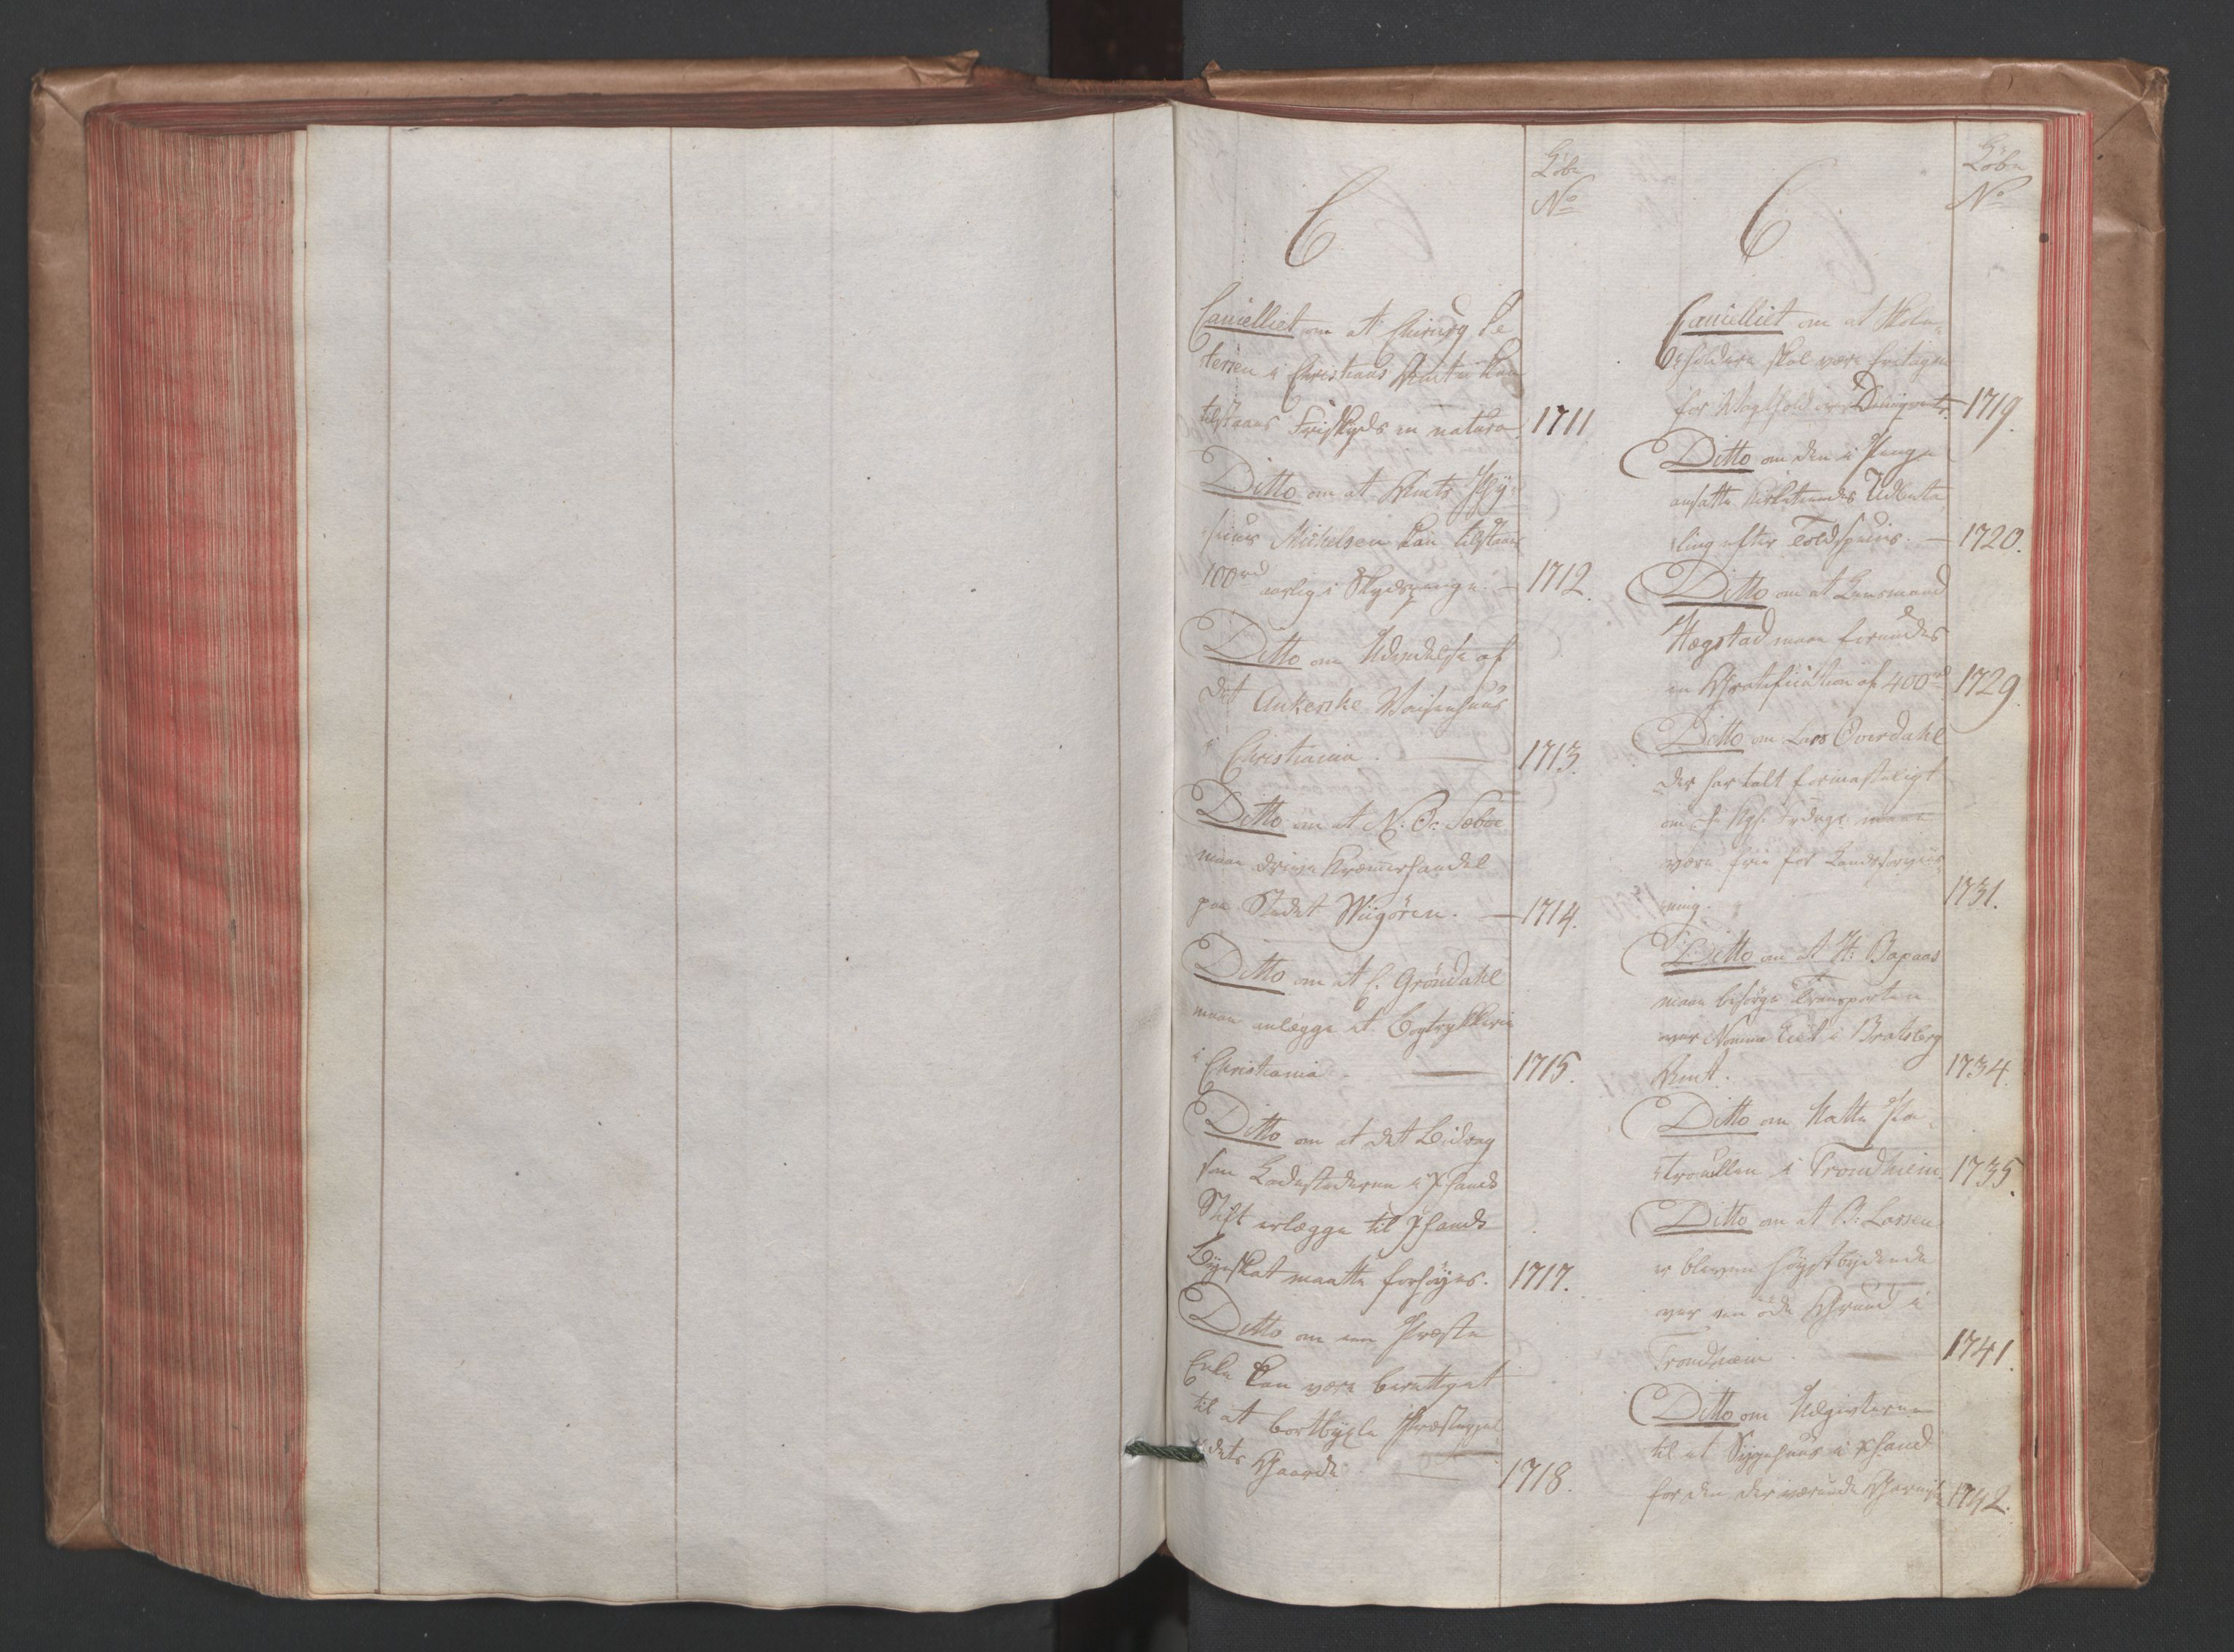 C
Løbe
No
Cancelliet om at Chirurg Pe
tersen i Christians Amt kan
tilstaaes Friskyds in natura. 1711
Ditto om at Amts Phÿ=
sicus Michelsen kan tilstaaes
100rd aarlig i Skydspenge. — 1712.
Ditto om Udvidelse af
det Ankerske Waisenhuus
i Christiania. — 1713.
Ditto om at N. O. Sæboe
maae drive Kræmmerhandel
paa Stedet Wiigøren. — 1714.
Ditto om at C. Grøndahl
maae anlægge et Bogtrykkerie
i Christiania. — 1715.
Ditto om at det Bidrag
som Ladestederne i Xsands
Stift erlægge til Xsands
Byeskat maatte forhøyes. 1717.
Ditto om en Præste
Enke kan være berettiget
til at bortbygle Præstegjel
dets Gaarde — 1718.
C
Løbe
No
Cancelliet om at Skole=
holdere skal være fritagne
for Vagthold over Delinqventer. 1719.
Ditto om den i Penge
ansatte Korntiendes Udbeta
ling efter Toldspecies. — 1720.
Ditto om at Lensmand
Hægstad maae forundes
en Gratification af 400rd 1729.
Ditto om Lars Overdahl
der har talt formasteligt
om H. Kgl. maae
være frie for Landsforviis
ning. 1731.
Ditto om at H: Bapaas
maae besørge Transporten
over Nomme Eiet i Bratsberg
Amt. 1734.
Ditto om Natte Pa=
trouillen i Trondhiem. 1735.
Ditto om at B: Lassen
er bleven høystbydende
over en øde Grund i
Trondhiem. — 1741.
Ditto om Udgivterne
til et Sygehuus i Xsand
for den derværende Garnison 1742.